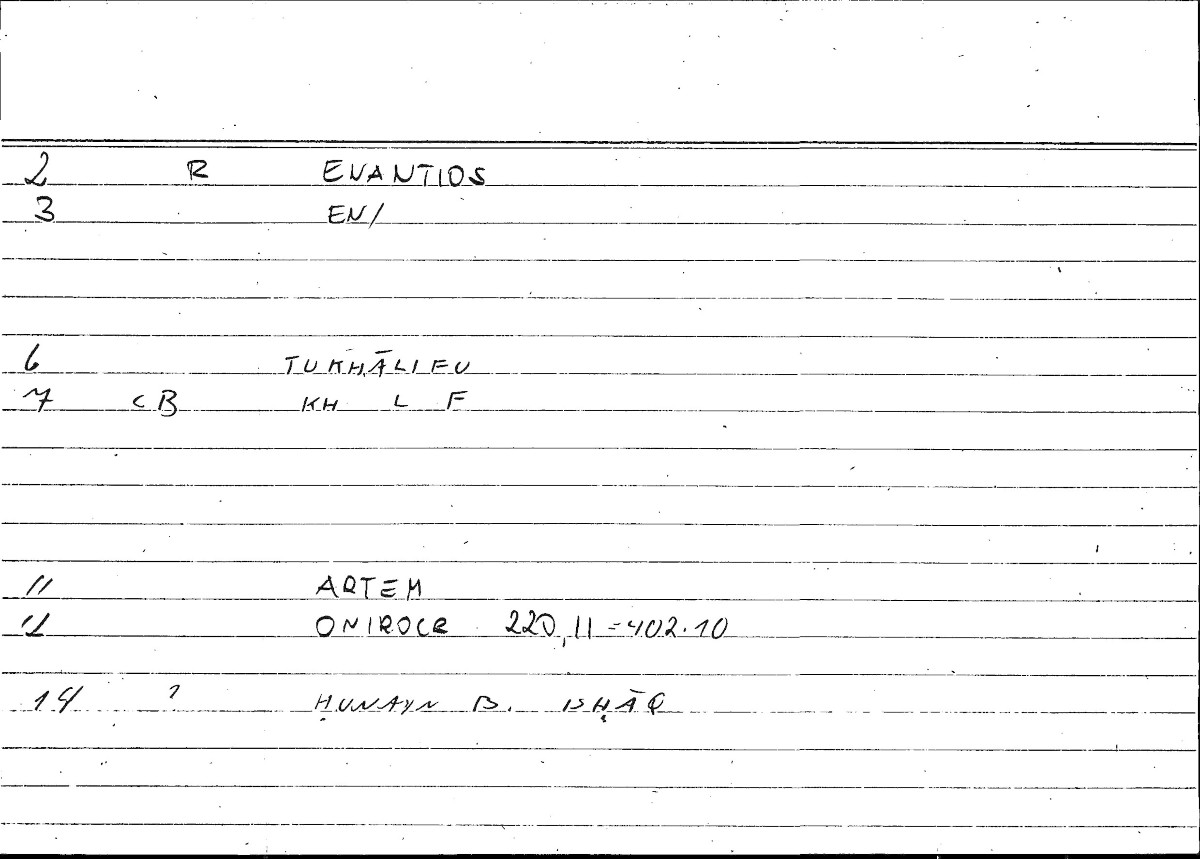 2 R ENANTIOS
3 EN/
6 TUKHĀLIFU
7 CB KH L F
11 ARTEM
12 ONIROCR 220,11=402.10
14 ? ḤUNAYN B. ISḤĀQ